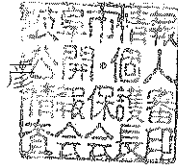 飯塚市情報
公開・個人
情報保護審
査会会長印